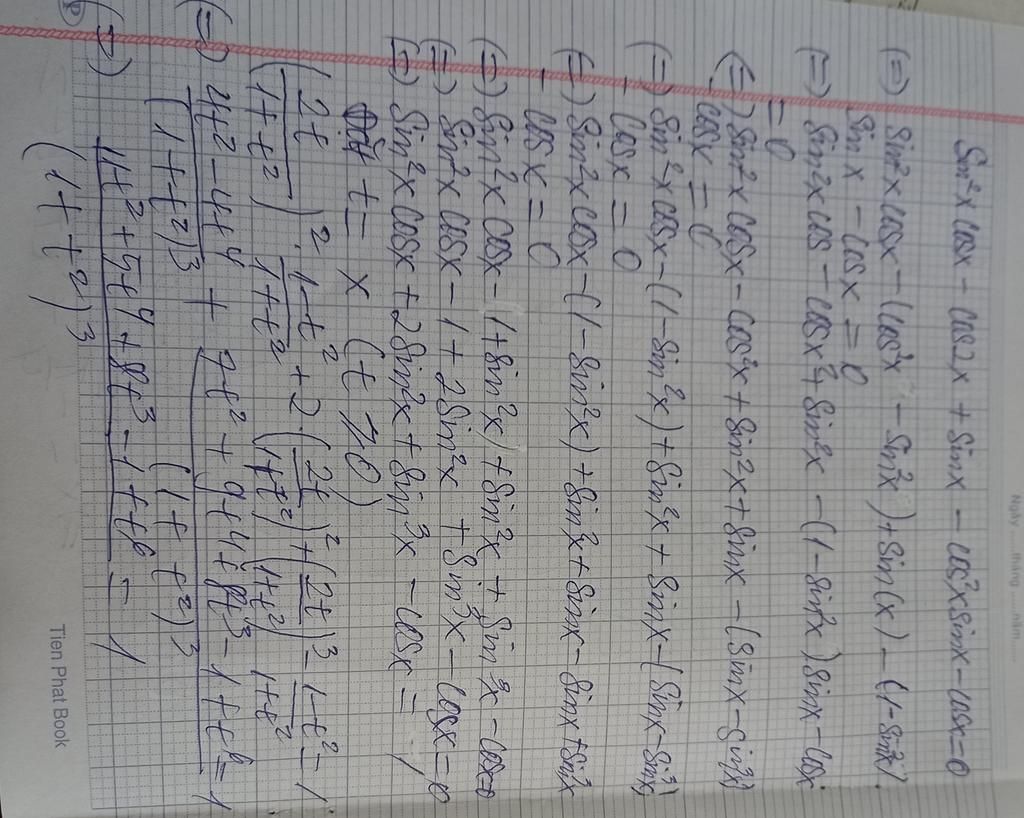 Sin²x cosx - cos2x + sinx - cos²x sinx - cosx = 0
(=) Sin²x cosx - (cos²x - sin²x) + sin(x) - (1 - sin²x).
Sinx - cosx = 0
(=) Sin²x cos - cosx² + sin²x - (1 - sin²x) sinx - cosx
= 0
(=) sin²x cosx - cos²x + sin²x + sinx - (sinx - sin³x)
- cosx = 0
(=) sin²x cosx - (1 - sin²x) + sin²x + sinx - (sinx - sin³x)
- cosx = 0
(=) sin²x cosx - (1 - sin²x) + sin²x + sinx - sinx + sin³x
- cosx = 0
(=) sin²x cosx - 1 + sin²x) + sin²x + sin³x - cosx = 0
(=) sin²x cosx - 1 + 2sin²x + sin³x - cosx = 0
(=) Sin²x cosx + 2sin²x + sin³x - cosx = 1
Đặt t = x (t ⩾ 0)
(2t/1+t²)² · 1-t²/1+t² + 2 · (2t/1+t²)² + (2t/1+t²)³ - 1-t²/1+t² = 1
(=) 4t² - 4t⁴/(1+t²)³ + 7t² + 9t⁴ + 8t³ - 1 + t⁶/(1+t²)³ = 1
(=) 11t² + 5t⁴ + 8t³ - 1 + t⁶/(1+t²)³ = 1
Ngày
tháng
năm
Tien Phat Book